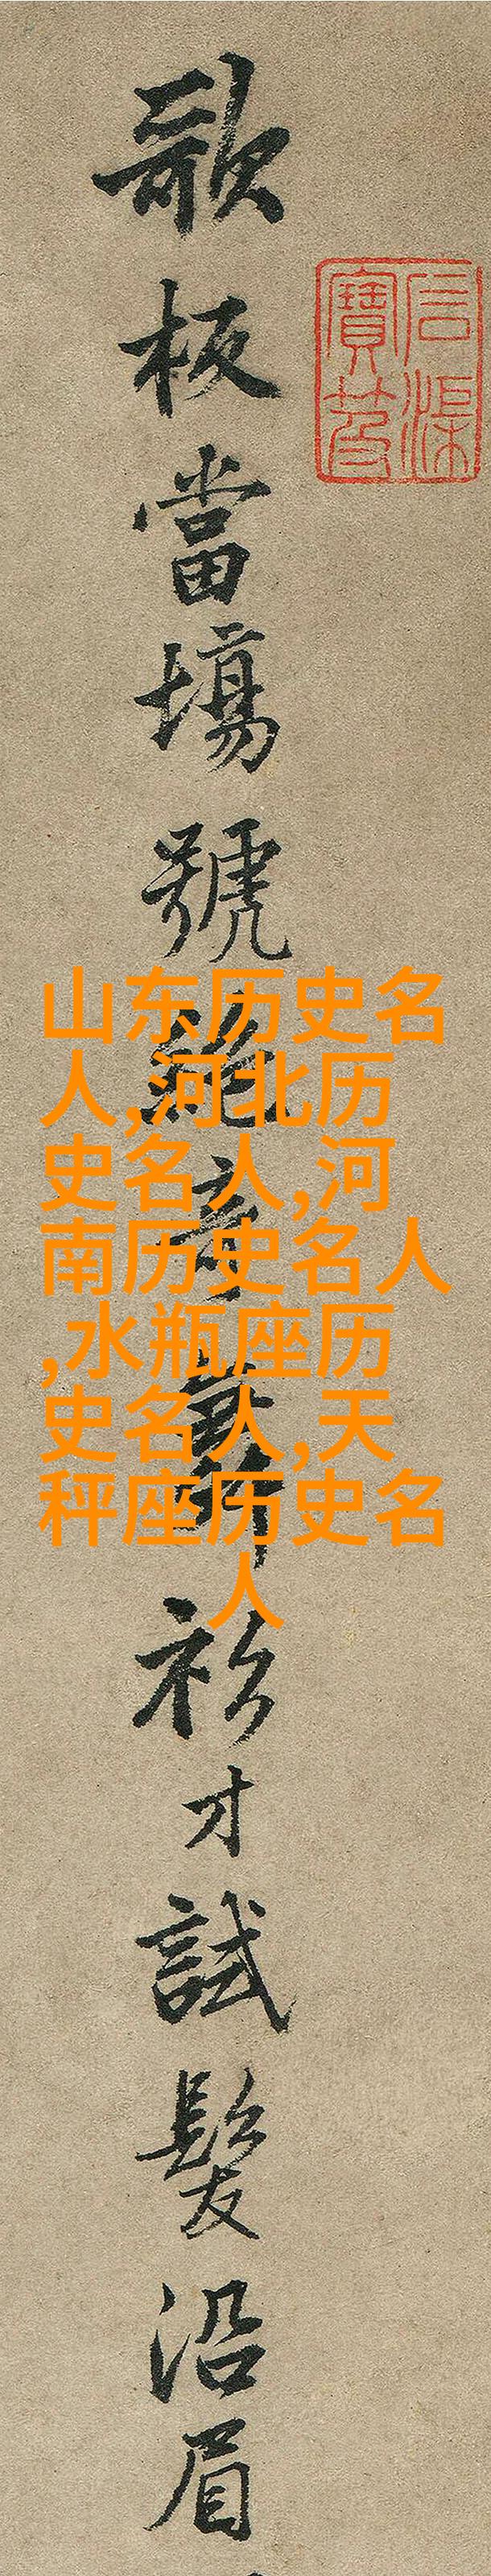 石渠
寶笈
歌板當場號絕奇舞衫才試髮沿眉
山东历史名
人,河北历
史名人,河
南历史名人
,水瓶座历
史名人,天
秤座历史名
人